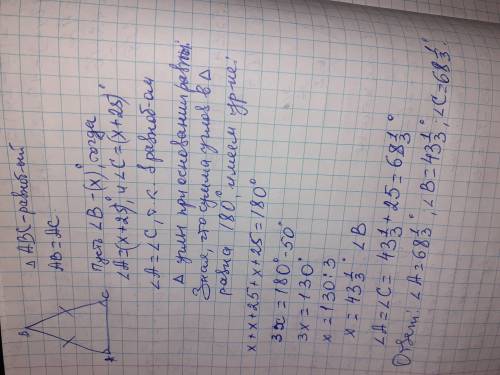 △ ABC-равноб-ый
AB = AC
Пусть ∠B - (x)°, тогда
∠A=(x+25)°, и ∠C=(x+25)°
∠A=∠C, т.к. в равноб-ом
△ углы при основании равны.
Зная, что сумма углов в △
равна 180°, имеем ур-ие:
x+x+25+x+25=180°
3x=180°-50°
3x=130°
x=130:3
x=43 1/3° ∠B
∠A=∠C= 43 1/3+25=68 1/3°
Ответ: ∠A=68 1/3°; ∠B=43 1/3°; ∠C=68 1/3°
B
A
C